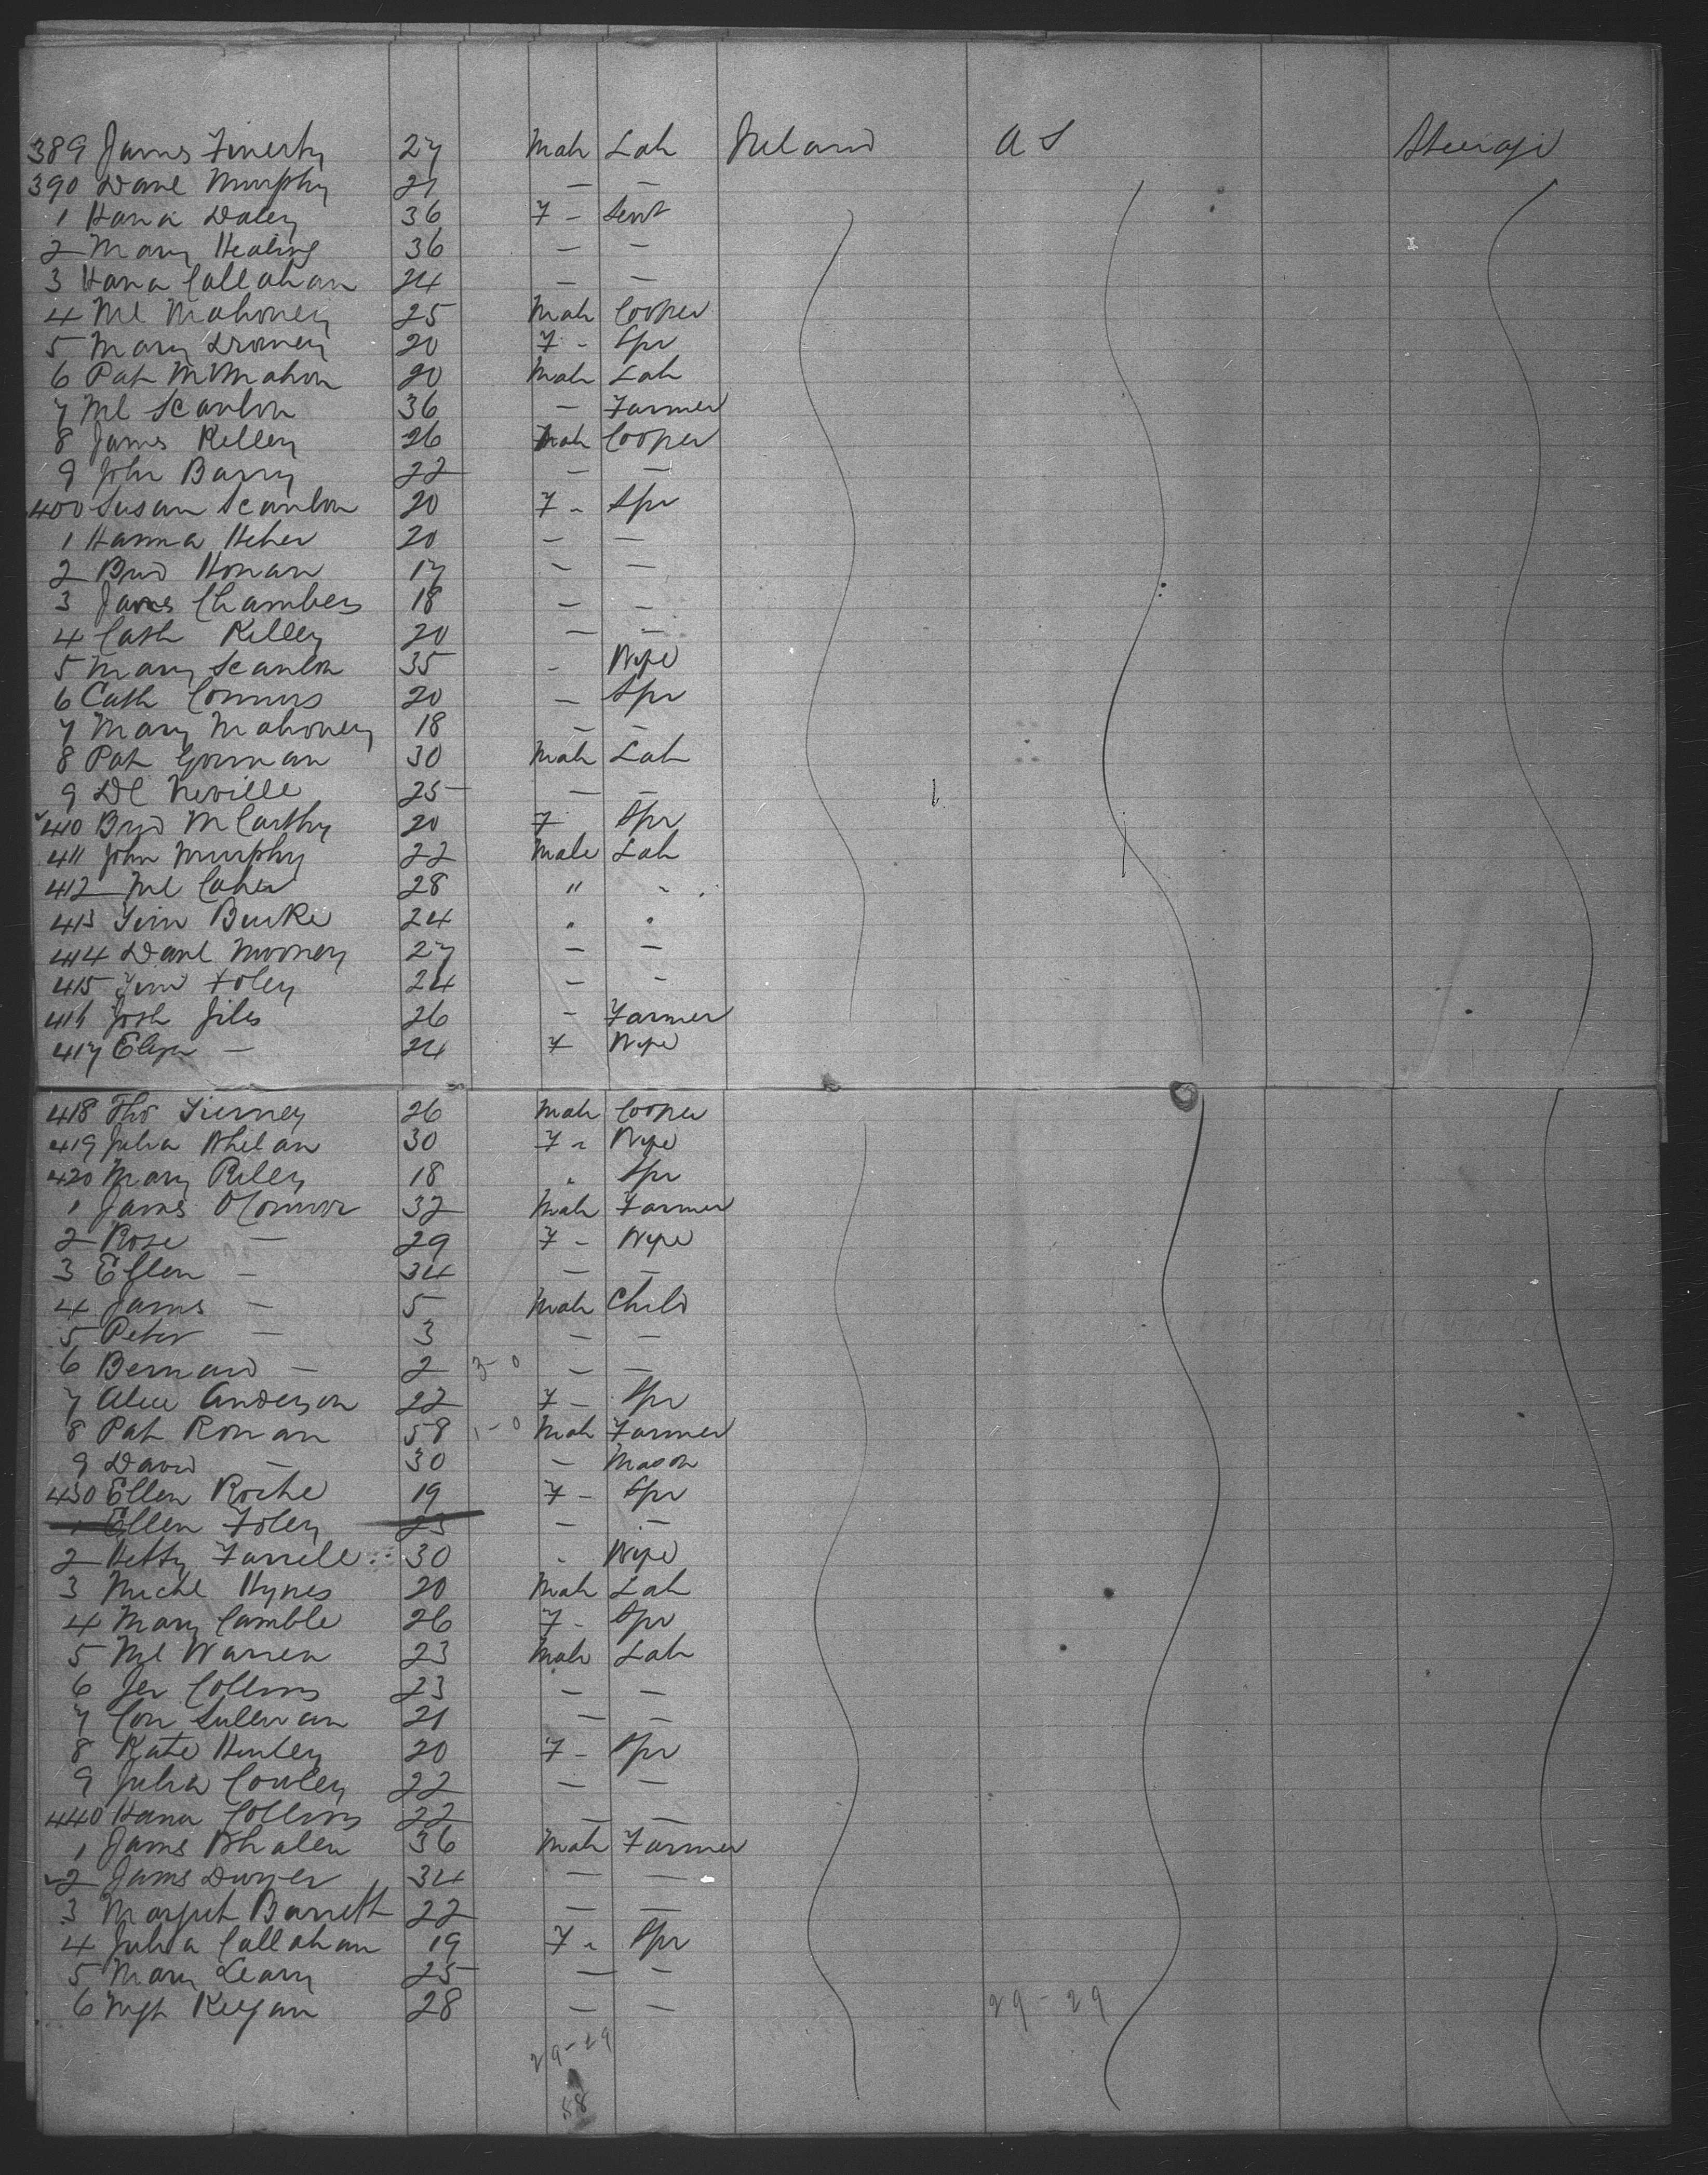 389 James Finerty 27 Male Lab Ireland U S Steerage
390 Danl Murphy 21 — —
1 Hana Daley 36 F - Servt
2 Mary Healing 36 — —
3 Hana Callahan 24 — —
4 Ml Mahoney 25 Male Cooper
5 Mary Droney 20 F - Spr
6 Pat McMahon 20 Male Lab
7 Ml Scanlon 36 — Farmer
8 James Kelley 26 Male Cooper
9 John Barry 22 — —
400 Susan Scanlon 20 F - Spr
1 Hanna Heher 20 — —
2 Brid Honan 17 - —
3 James Chambers 18 — —
4 Cath Kelley 20 — —
5 Mary Scanlon 35 - Wife
6 Cath Connors 20 — Spr
7 Mary Mahoney 18 — —
8 Pat Gorman 30 Male Lab
9 Dl Neville 25 — —
410 Brid McCarthy 20 F Spr
411 John Murphy 22 Male Lab
412 Ml Caher 28 " -
413 Tim Burke 24 " "
414 Danl Mooney 27 — —
415 Tim Foley 24 — -
416 Josh Giles 26 - Farmer
417 Eliza — 24 F Wife
418 Thos Tierney 26 Male Cooper
419 Julia Whelan 30 F - Wife
420 Mary Riley 18 " Spr
1 James O'Connor 32 Male Farmer
2 Rose — 29 F - Wife
3 Ellen — 34 — —
4 James — 5 Male Child
5 Peter — 3 — —
6 Bernard — 2 3-0 — —
7 Alice Anderson 22 F - Spr
8 Pat Ronan 58 1-0 Male Farmer
9 David — 30 — Mason
430 Ellen Roche 19 F - Spr
1 Ellen Foley 23 — —
2 Hetty Farrell 30 - Wife
3 Michl Hynes 20 Male Lab
4 Mary Camble 26 F - Spr
5 Ml Warren 23 Male Lab
6 Jer Collins 23 — —
7 Con Sullivan 21 — —
8 Kate Hurley 20 F - Spr
9 Julia Conley 22 — —
440 Hana Collins 22 — —
1 James Whalen 36 Male Farmer
2 James Dwyer 34 — —
3 Margret Barrett 22 — —
4 Julia Callahan 19 F - Spr
5 Mary Leary 25 — —
6 Mgt Keegan 28 — — 29-29
29-29
58